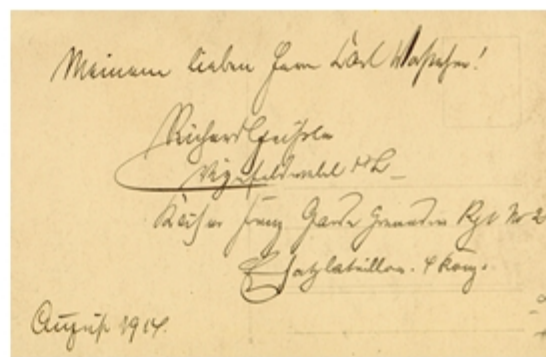 Meinem lieben Herrn Karl
Richard
Vizefeldwebel d. L.
Kaiser Franz Garde Grenadier Rgt Nr 2
Ersatzbataillon. 4 Komp.
August 1914.